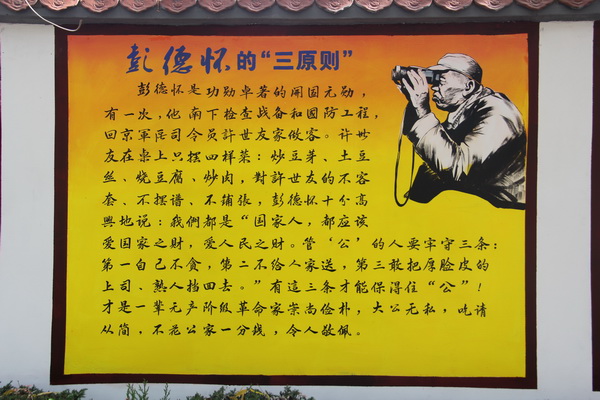 彭德怀的“三原则”
彭德怀是功勋卓著的开国元勋，
有一次，他南下检查战备和国防工程，
回京軍区司令员許世友家做客。许世
友在桌上只摆四样菜：炒豆芽、土豆
丝、烧豆腐、炒肉，對許世友的不客
套、不摆谱、不铺张，彭德怀十分高
興地说：我們都是“国家人，都应该
爱国家之财，爱人民之财。管‘公’的人要牢守三条：
第一自己不贪，第二不给人家送，第三敢把厚脸皮的
上司、熟人挡回去。”有這三条才能保得住“公”！
才是一辈无产阶级革命家崇尚俭朴，大公无私，吃请
从简，不花公家一分钱，令人敬佩。